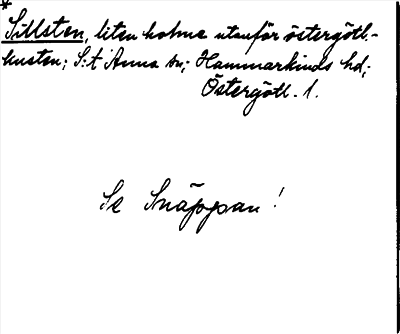 *
Sillsten, liten holme utanför östergötl.-
kusten; S:t Anna sn; Hammarkinds hd,
Östergötl. l.
Se Snäppan!